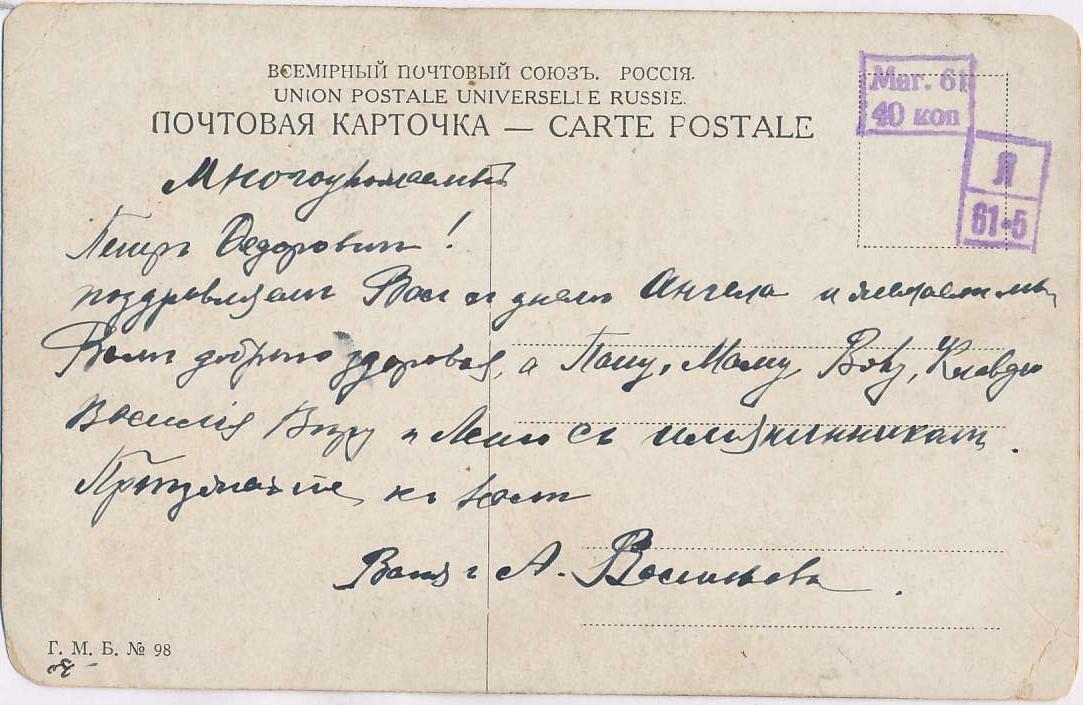 ВСЕМІРНЫЙ ПОЧТОВЫЙ СОЮЗЪ. РОССІЯ.
UNION POSTALE UNIVERSELLE RUSSIE.
ПОЧТОВАЯ КАРТОЧКА — CARTE POSTALE
Маг. 61
40 коп
Л
61-5
Многоуважаемый
Петръ Федоровичъ!
поздравляемъ Васъ съ днемъ Ангела и желаемъ мы
Вамъ добраго здоровья, а Папу, Маму, Вову, Клавдю
Василія Веру и Леню съ имянинникомъ.
Приезжайте къ намъ
Ваня и А. Васильева.
Г. М. Б. № 98